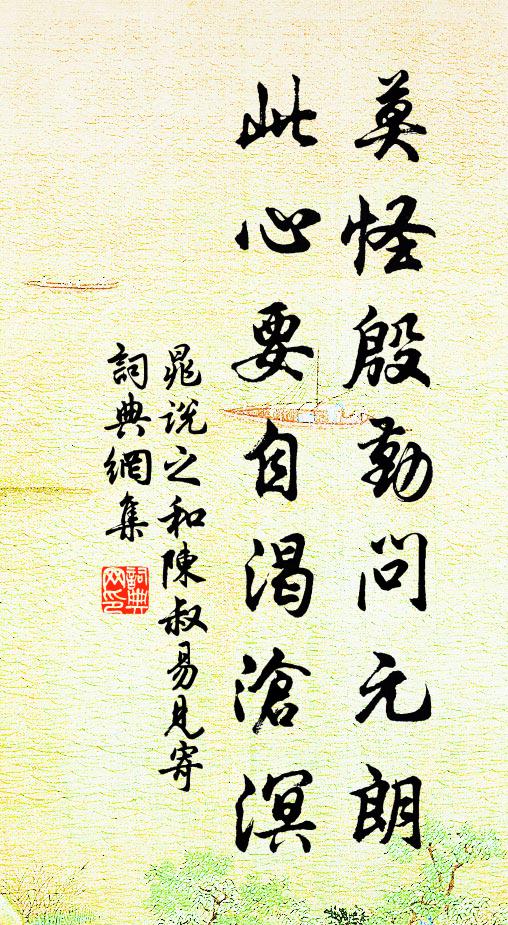 莫怪殷勤問元朗
此心要自渴滄溟
晁说之和陳叔易見寄
詞典網集
詞典网印